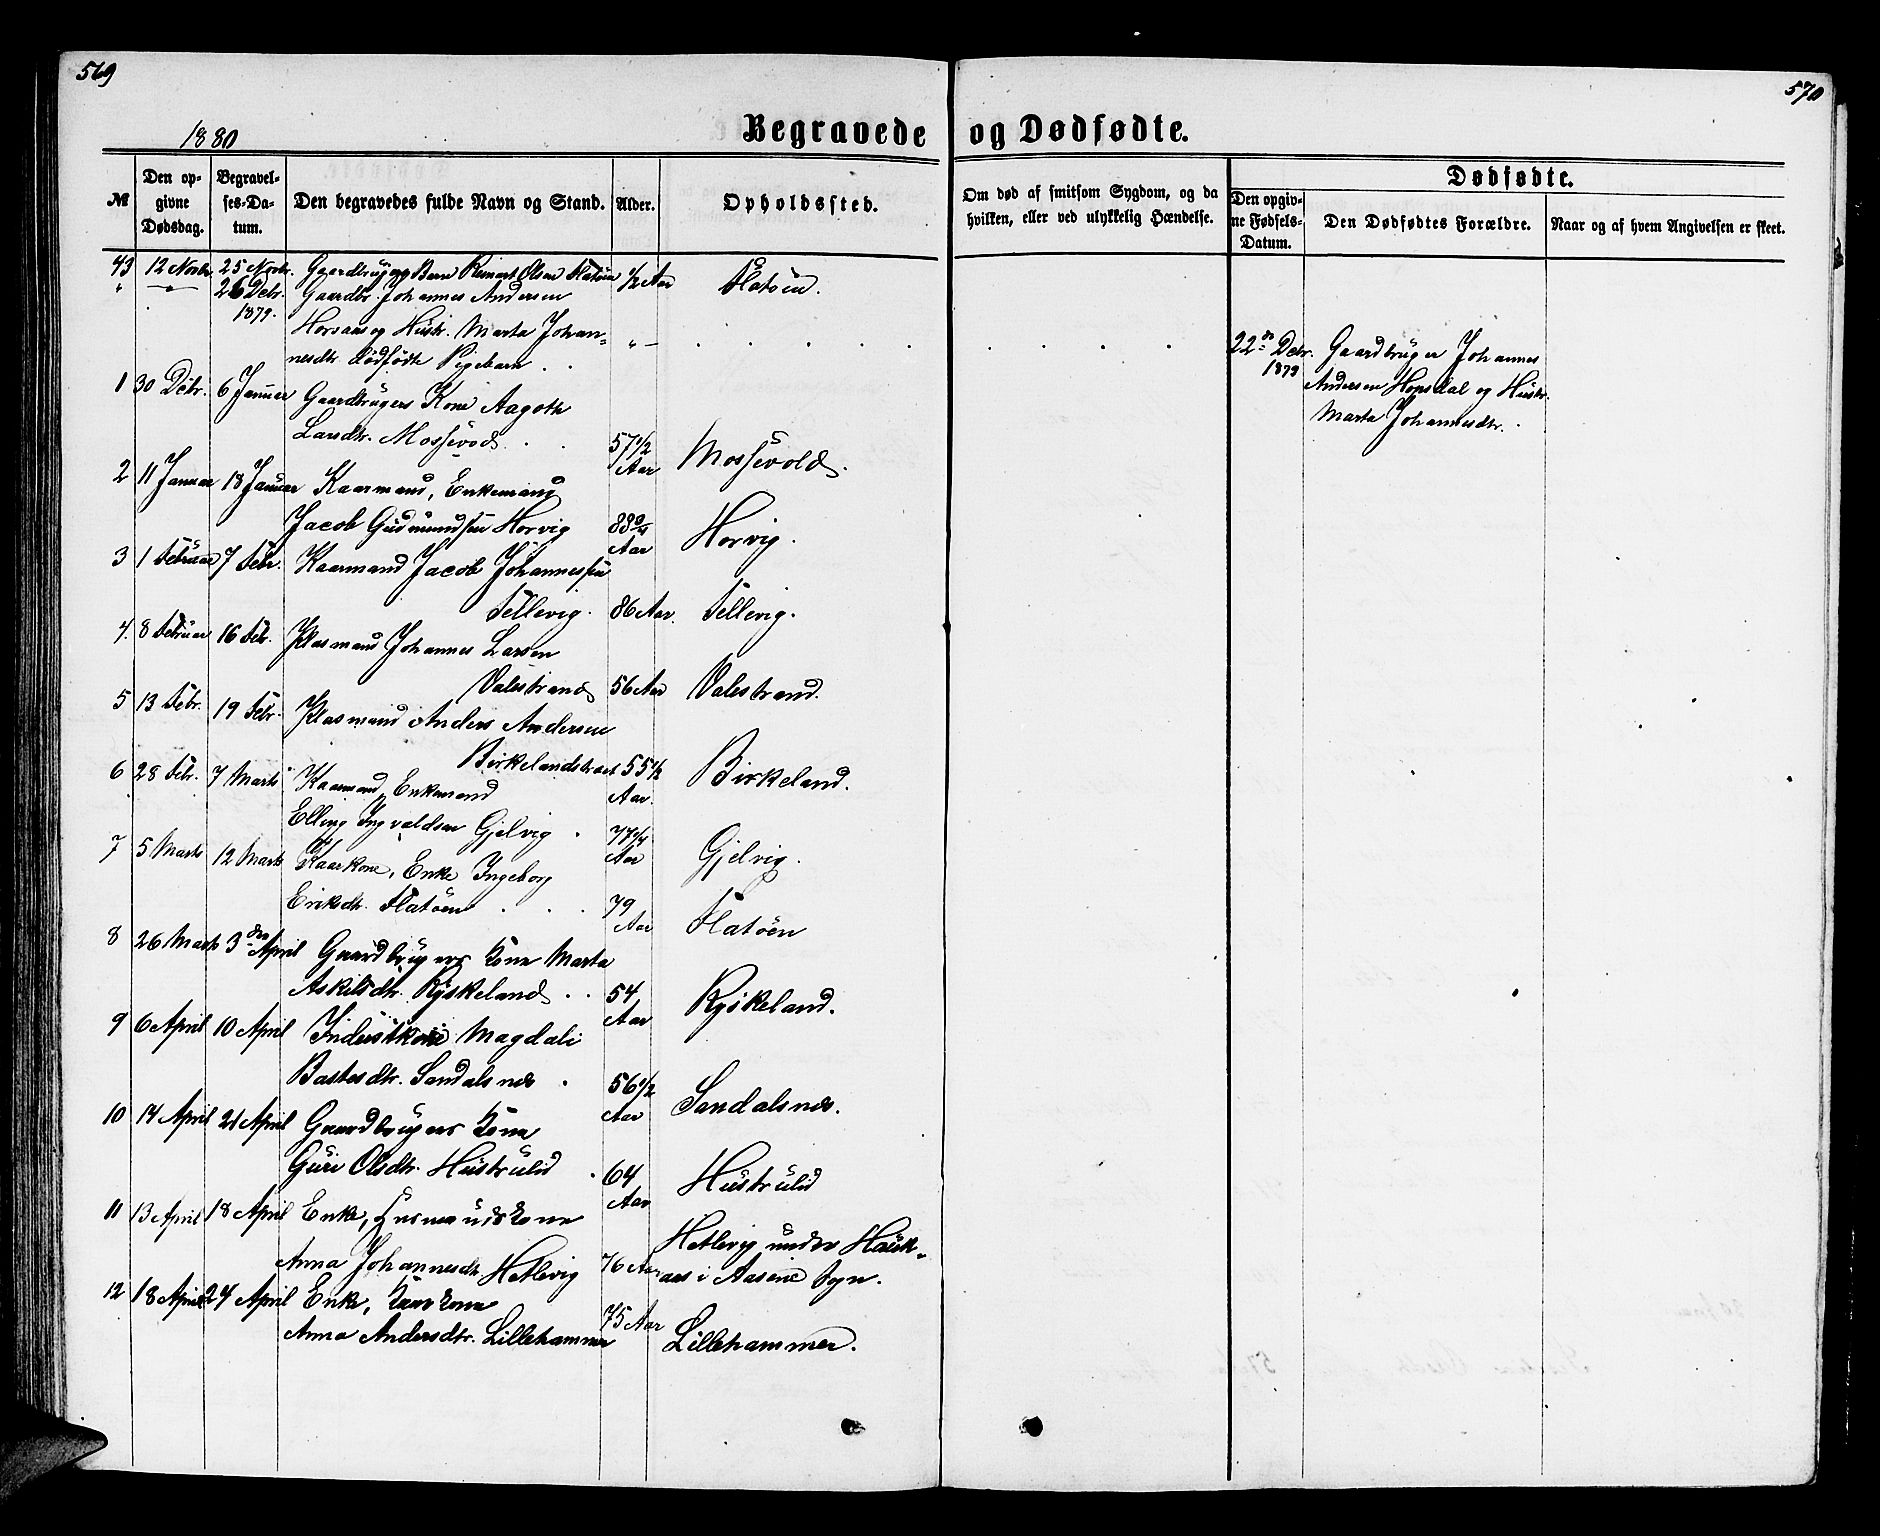 569
570
1880
Begravede og Dødfødte.
№
Den opgivne Dødsdag.
Begravelses-Datum.
Den begravedes fulde Navn og Stand.
Alder.
Opholdssted.
Om død af smitsom Sygdom, og da hvilken, eller ved ulykkelig Hændelse.
Dødfødte.
Den opgivne Fødsels-Datum.
Den Dødfødtes Forældre.
Naar og af hvem Angivelsen er skeet.
43 12 Novbr. 25 Novbr. Barn Olsen Flatöen 1/2 Aar Flatöen.
" 26 Debr. Gaardbr. Johannes Andersen
1879. og Hustr. Marta Johan-
nesdtr. dödfödte Pigebarn . . "
22de Debr. Gaardbrüger Johannes
1879 Andersen Hopsdal og Hustr.
Marta Johannesdtr.
1 30 Debr. 6 Januar Gaardbrügers Kone Aagothe
Larsdtr. Mossevold . . 57 1/2 Aar Mossevold.
2 11 Januar 18 Januar Kaarmand, Enkemand
Jacob Gudmundsen Horvig Aar Horvig.
3 1 Februar 7 Febr. Kaarmand Jacob Johannessen
Tellevig. 86 Aar. Tellevig.
4. 8 Februar 16 Febr. Johannes Larsen
Valestrand 56 Aar Valestrand.
5 13 Febr. 19 Febr. Anders Andersen
Birkelandstræet 55 1/2 Aar. Birkeland.
6 28 Febr. 7 Marts Kaarmand, Enkemand
Elling Ingvaldsen Gjelvig . Aar Gjelvig.
7 5 Marts 12 Marts Kaarkone, Enke Ingeborg
Eriksdtr. Flatöen . . . 79 Aar Flatöen
8 26 Marts 3die April Gaardbrügers Kone Marta
Askelsdtr. Ryskeland . . 54 Aar Ryskeland.
9 6 April 10 April Inderstkone Magdali
Bastesdtr. Sandalsnes . 56 1/2 Aar Sandalsnes.
10 14 April 21 April Gaardbrügers Kone
Guri Olsdtr. Hüstrulid . 64 Aar Hüstrulid
11 13 April 18 April Enke, Husmandskone
Anna Johannesdtr. Hetlevig 76 Aar Hetlevig under Hauk-
aas i Aasene Sogn.
12 18 April 24 April Enke, Kaarkone
Anna Andersdtr. Lillehammer 75 Aar Lillehammer.